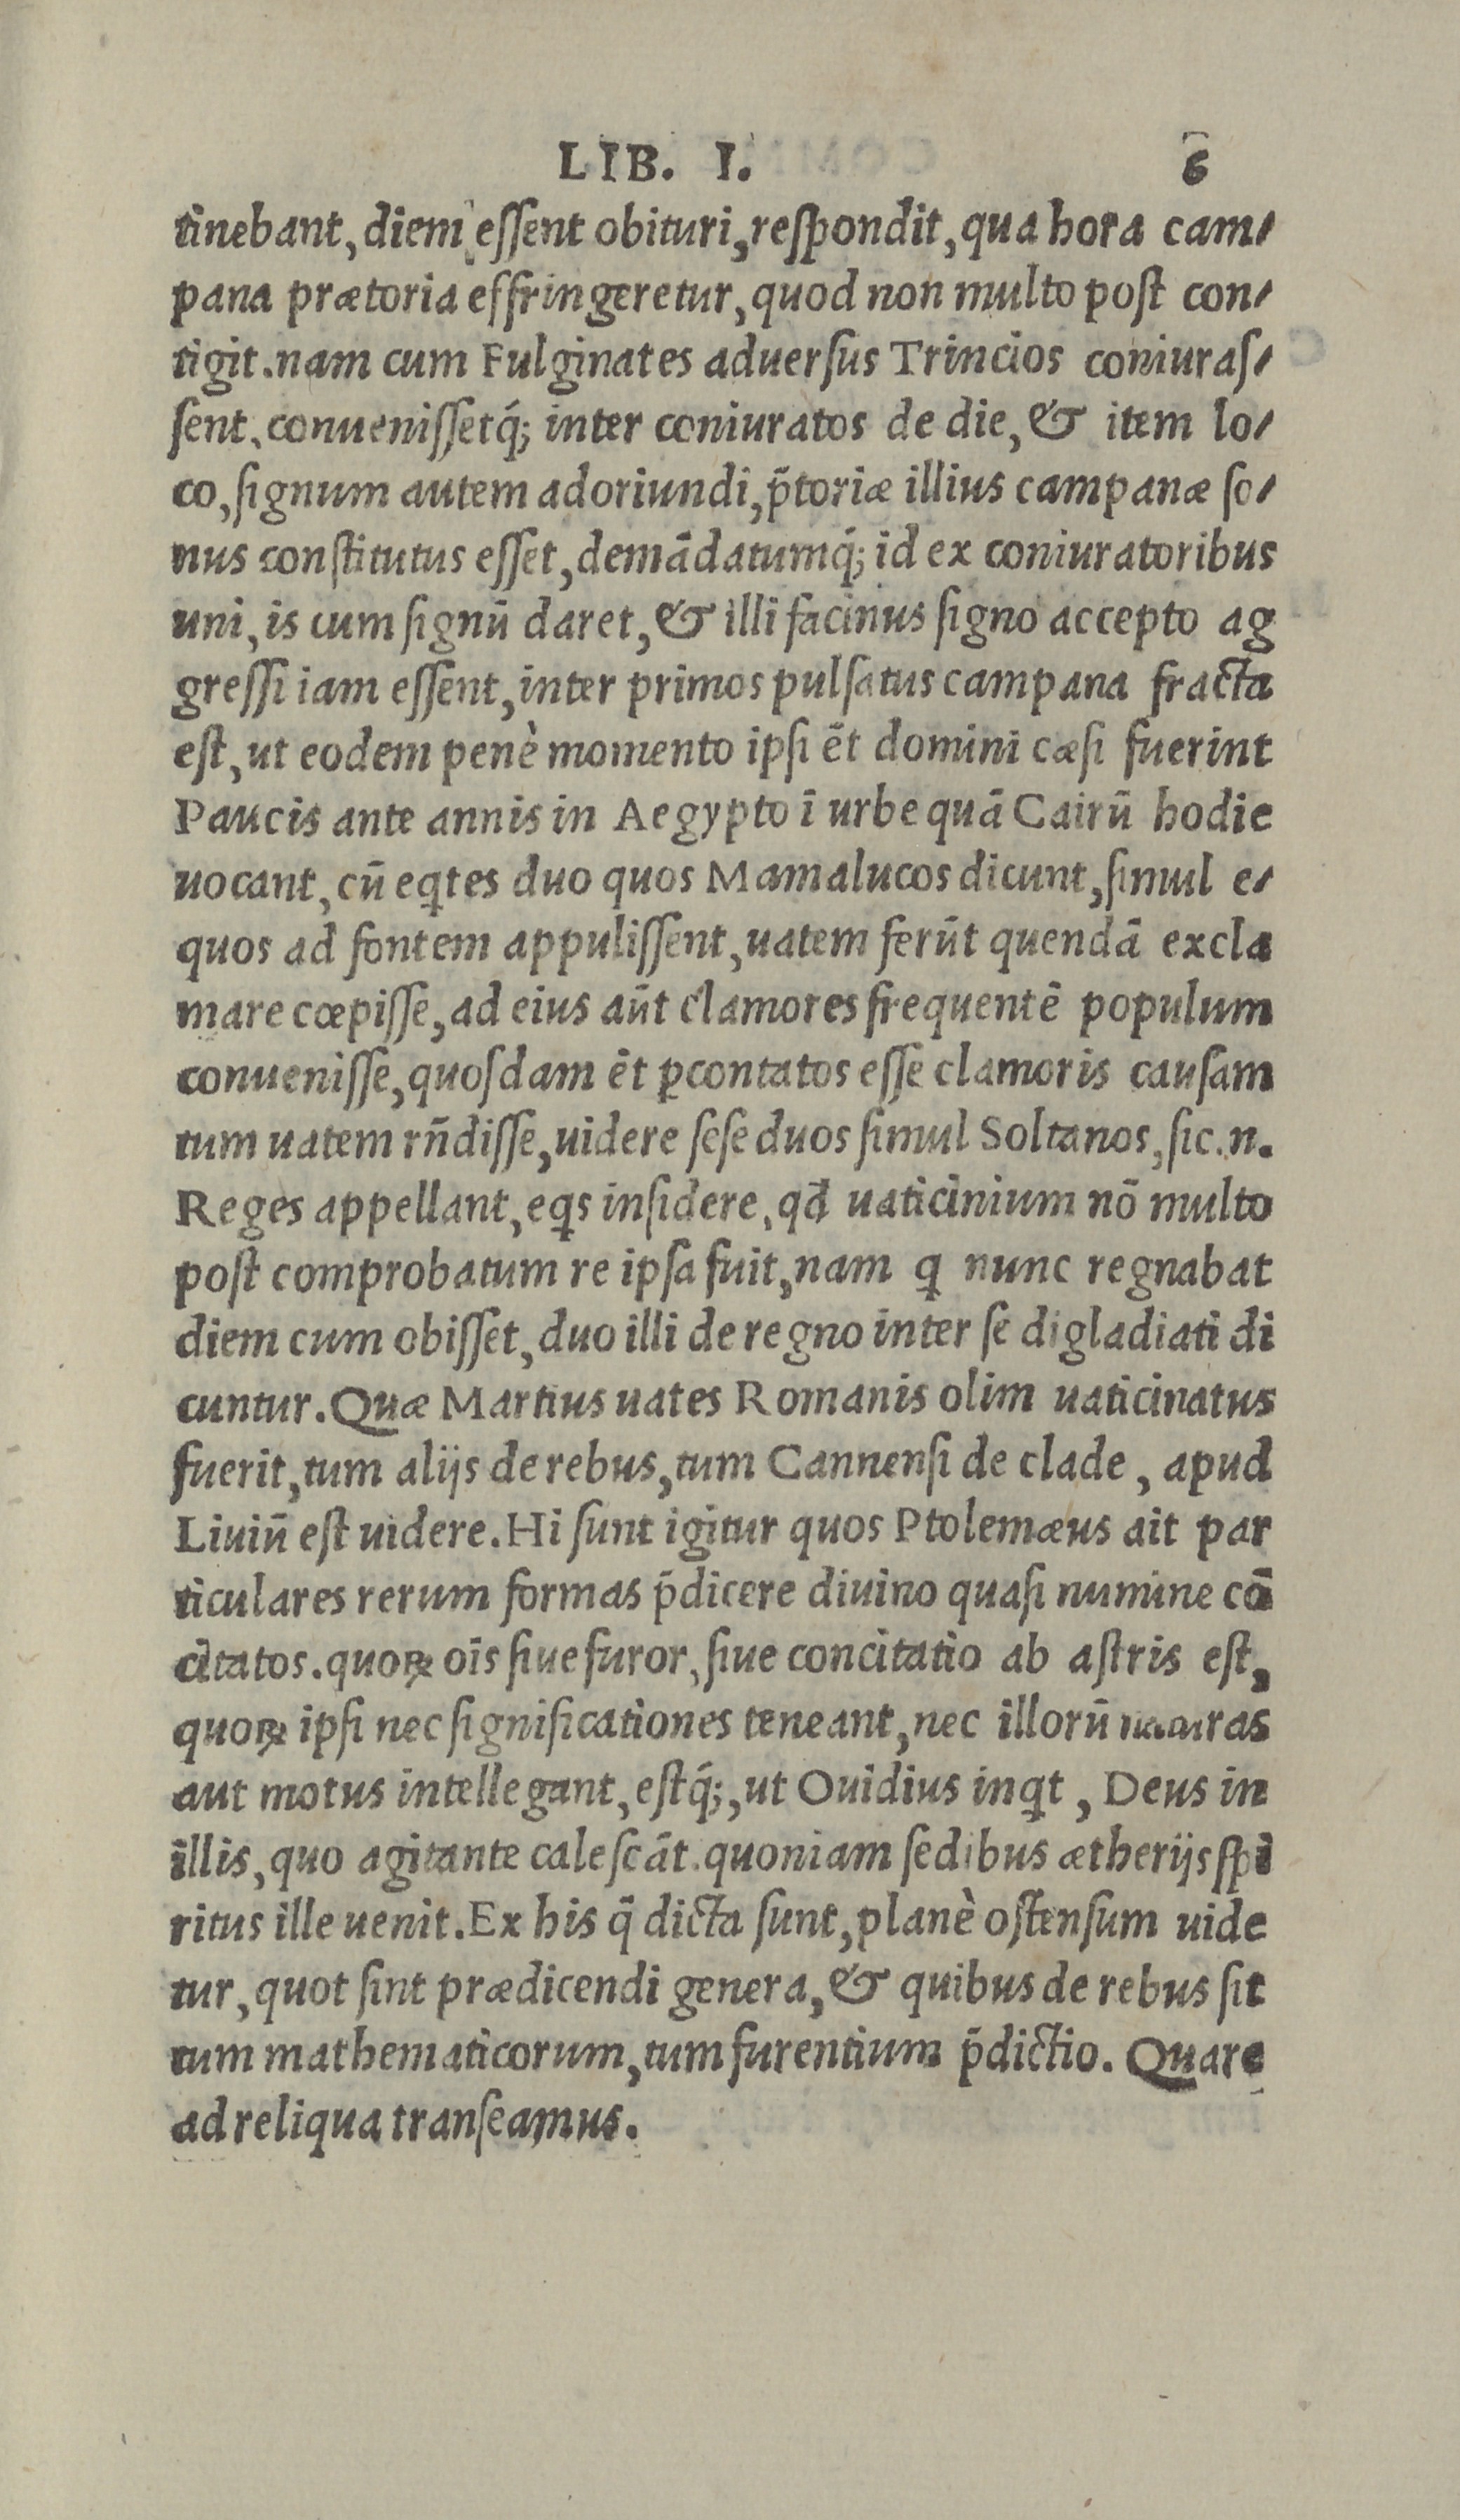 LIB. I. 6
tinebant, diem essent obituri, respondit, qua hora cam-
pana prætoria effringeretur, quod non multo post con-
tigit. nam cum Fulginates aduersus Trincios coniuras-
sent, conuenissetq́; inter coniuratos de die, & item lo-
co, signum autem adoriundi, p̄toriæ illius campanæ so-
nus constitutus esset, demādatumq́; id ex coniuratoribus
uni, is cum signū daret, & illi facinus signo accepto ag
gressi iam essent, inter primos pulsatus campana fracta
est, ut eodem penè momento ipsi ēt domini cæsi fuerint
Paucis ante annis in Aegypto ī urbe quā Cairū hodie
uocant, cū eqtes duo quos Mamalucos dicunt, simul e-
quos ad fontem appulissent, uatem ferūt quendā excla
mare cœpisse, ad eius aūt clamores frequentē populum
conuenisse, quosdam ēt ꝑcontatos esse clamoris causam
tum uatem rñdisse, uidere sese duos simul Soltanos, sic .n.
Reges appellant, eqs insidere, qđ uaticinium nō multo
post comprobatum re ipsa fuit, nam q nunc regnabat
diem cum obisset, duo illi de regno inter se digladiati di
cuntur. Quæ Martius uates Romanis olim uaticinatus
fuerit, tum alijs de rebus, tum Cannensi de clade, apud
Liuiū est uidere. Hi sunt igitur quos Ptolemæus ait par
ticulares rerum formas p̄dicere diuino quasi numine cō
citatos. quoꝝ oīs siue furor, siue concitatio ab astris est,
quoꝝ ipsi nec significationes teneant, nec illorū naturas
aut motus intellegant, estq́;, ut Ouidius inqt, Deus in
illis, quo agitante calescāt. quoniam sedibus ætherijs spi
ritus ille uenit. Ex his q̄ dicta sunt, planè ostensum uide
tur, quot sint prædicendi genera, & quibus de rebus sit
tum mathematicorum, tum furentium p̄dictio. Quare
ad reliqua transeamus.